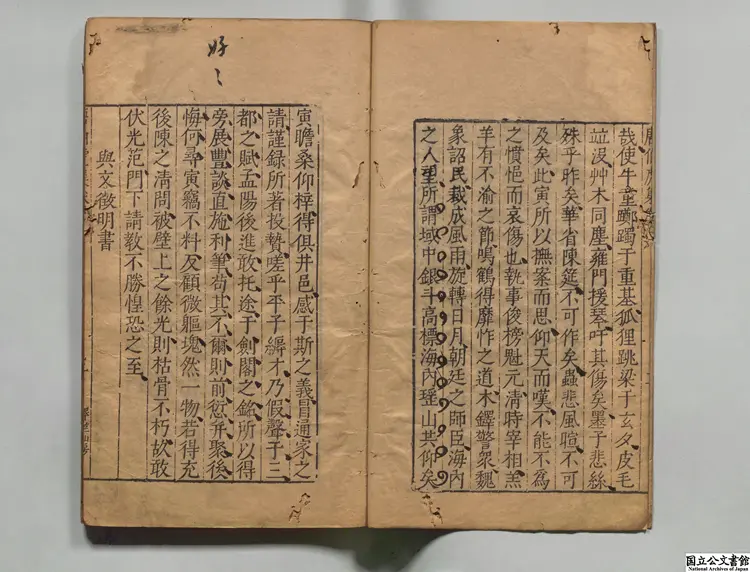 哉使牛童躑躅于重基狐狸跳梁于玄夕皮毛
竝没艸木同塵雍門援琴吁其傷矣墨子悲絲
殊乎昨矣華省陳筵不可作矣蟲悲風喧不可
及矣此寅所以撫案而思仰天而嘆不能不為
之憤悒而哀傷也執事俊榜魁元清時宰相羔
羊有不渝之節鳴鶴得靡忤之道木鐸警衆魏
象詔民裁成風雨旋轉日月朝廷之師臣海內
之人望所謂域中銀斗高標海內瑤山共仰矣
好
〻
寅瞻桑仰梓得俱井邑感于斯之義冒通家之
請謹録所著投贄嗟乎平子縟才乃假聲于三
都之賦孟陽後進敢托途于劍閣之銘所以得
旁展豐談直施利筆苟其不爾則前愆弁聚後
悔何尋寅竊不料反顧微軀塊然一物若得充
後陳之清問被壁上之餘光則枯骨不朽故敢
伏光范門下請教不勝惶恐之至
與文徵明書
国立公文書館
National Archives of Japan